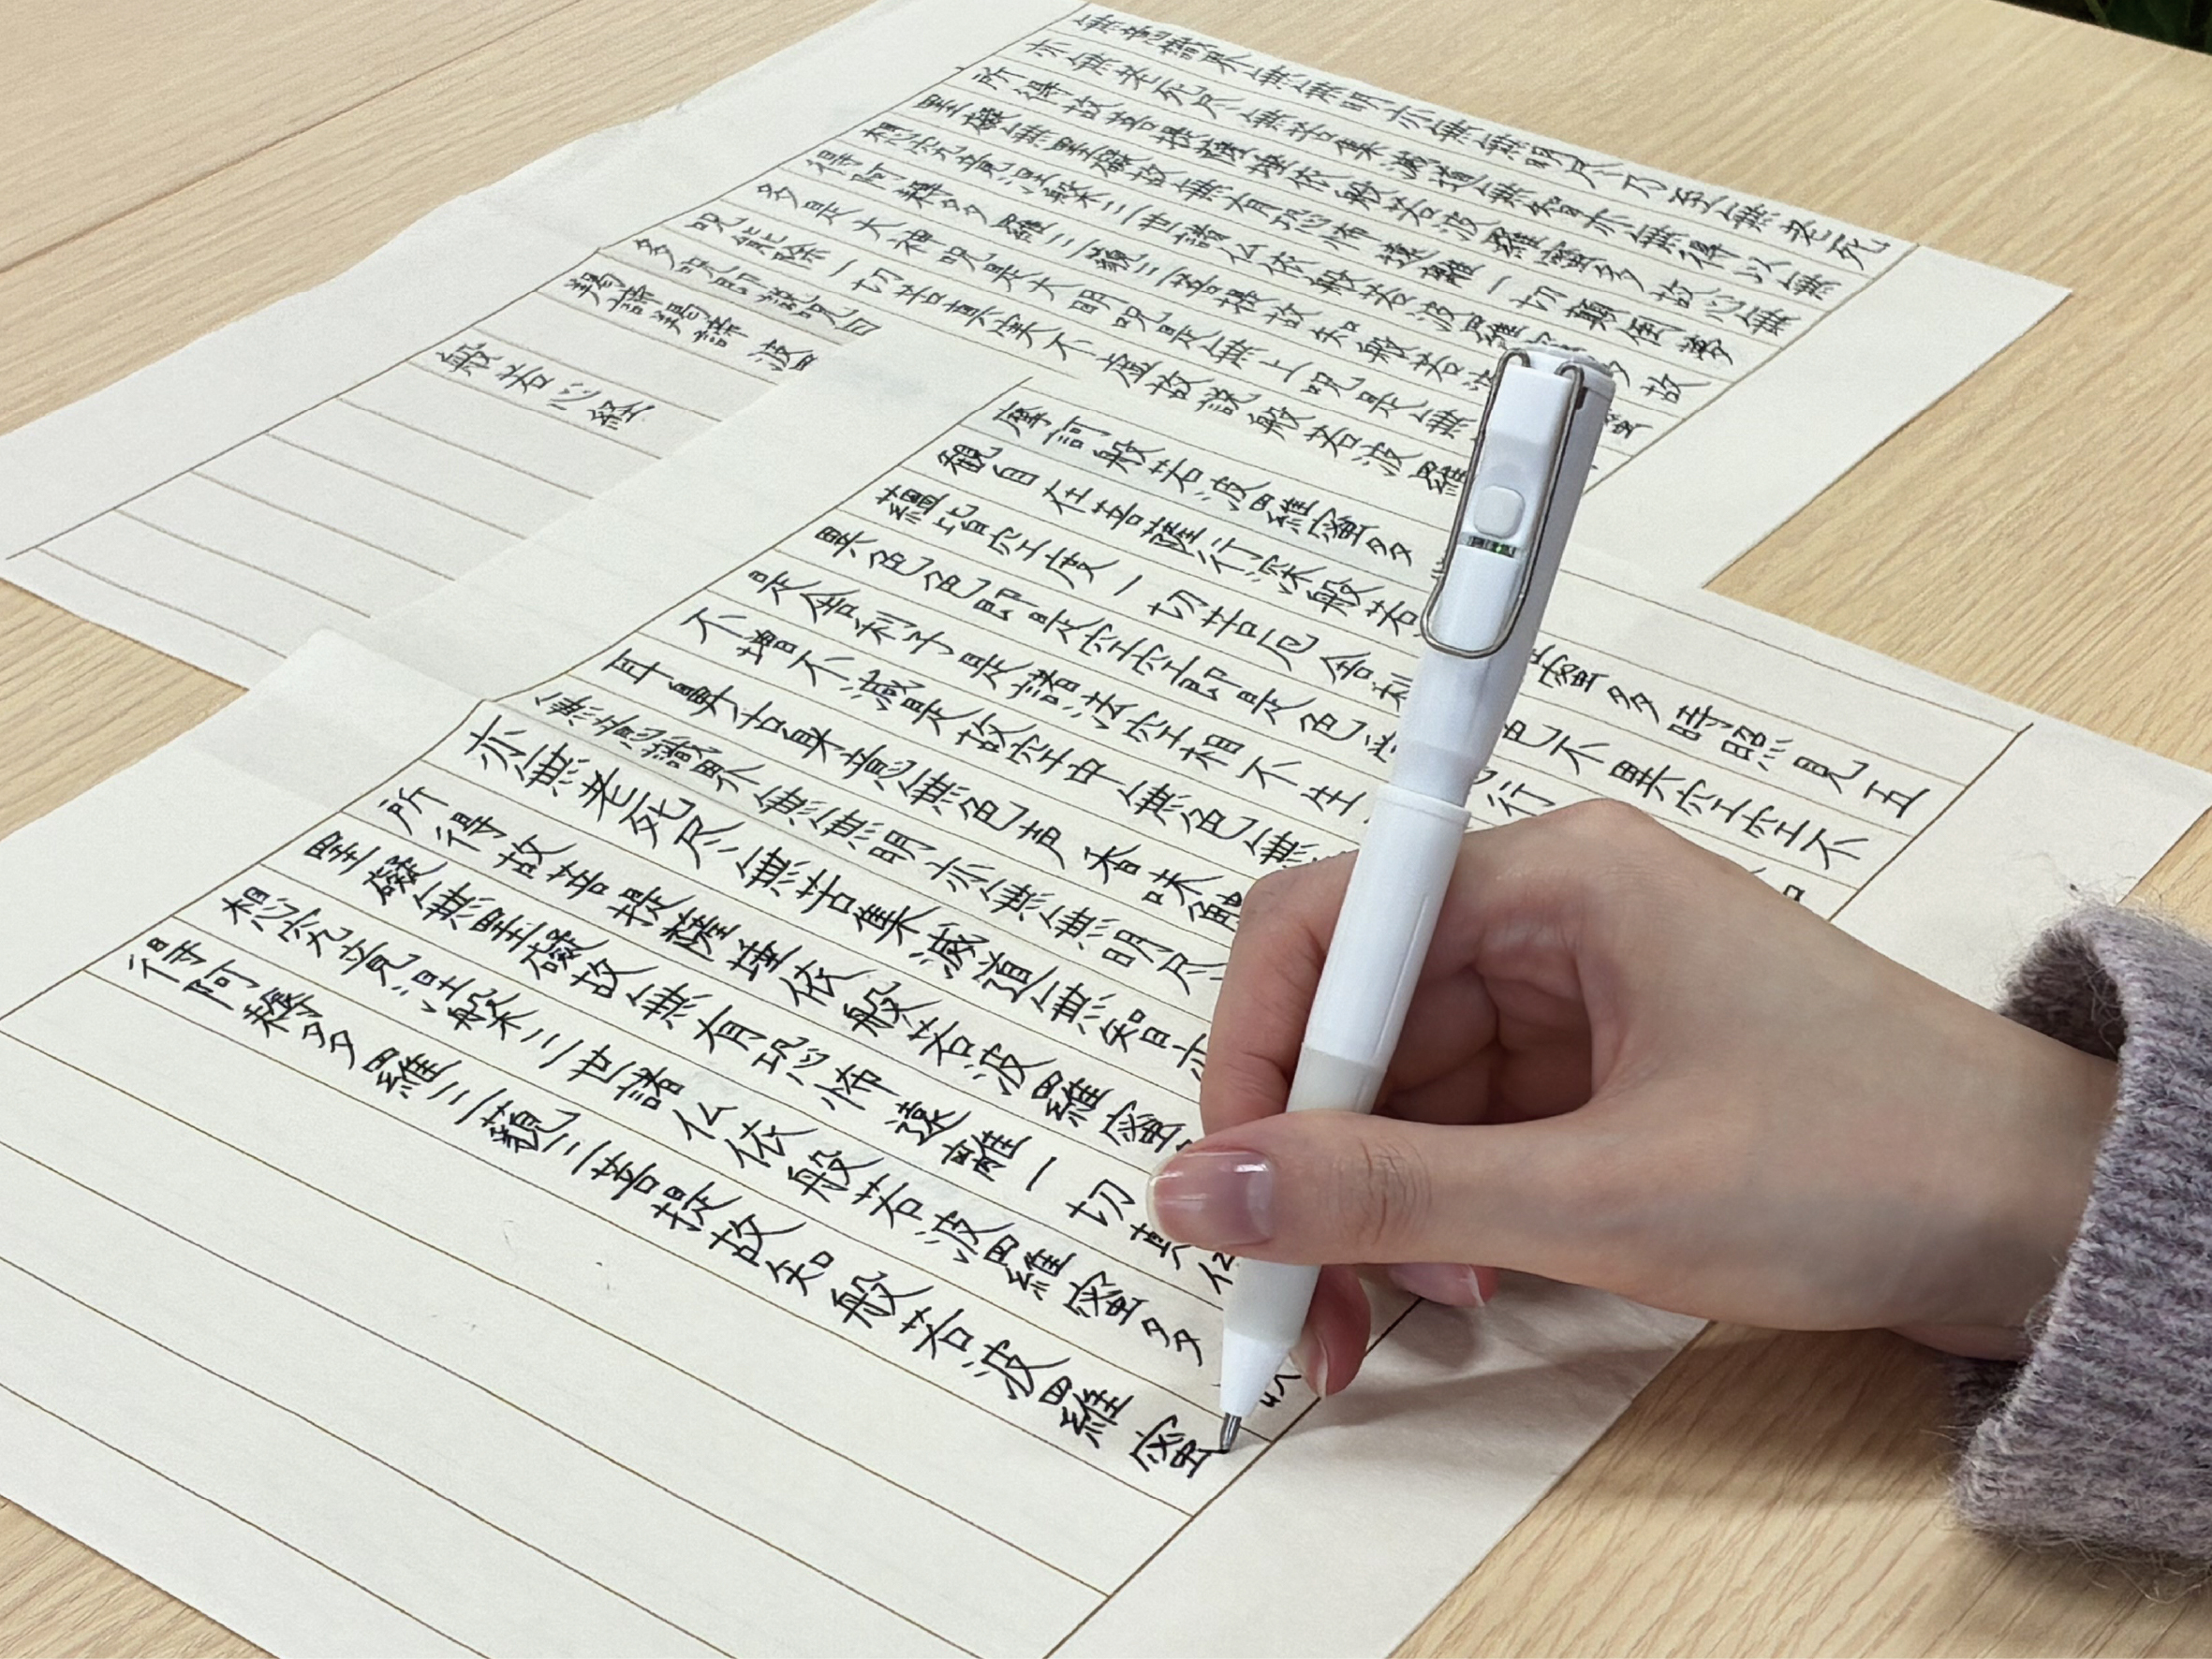 無意識界無無明亦無無明尽乃至無老死
亦無老死尽無苦集滅道無智亦無得以無
所得故菩提薩埵依般若波羅蜜多故心無
罣礙無罣礙故無有恐怖遠離一切顛倒夢
想究竟涅槃三世諸仏依般若波羅 多故
得阿耨多羅三藐三菩提故知般若波 蜜
多是大神呪是大明呪是無上呪是無
呪能除一切苦真実不虚故説般若波羅
多呪即説呪曰
羯諦羯諦 波
般若心経
摩訶般若波羅蜜多
観自在菩薩行深般若 蜜多時照見五
蘊皆空度一切苦厄舎利 色不異空空不
異色色即是空空即是色受 行
是舎利子是諸法空相不生
不増不減是故空中無色無
耳鼻舌身意無色声香味触
無意識界無無明亦無無明尽
亦無老死尽無苦集滅道無智亦
所得故菩提薩埵依般若波羅蜜
罣礙無罣礙故無有恐怖遠離一切
想究竟涅槃三世諸仏依般若波羅蜜多
得阿耨多羅三藐三菩提故知般若波羅蜜